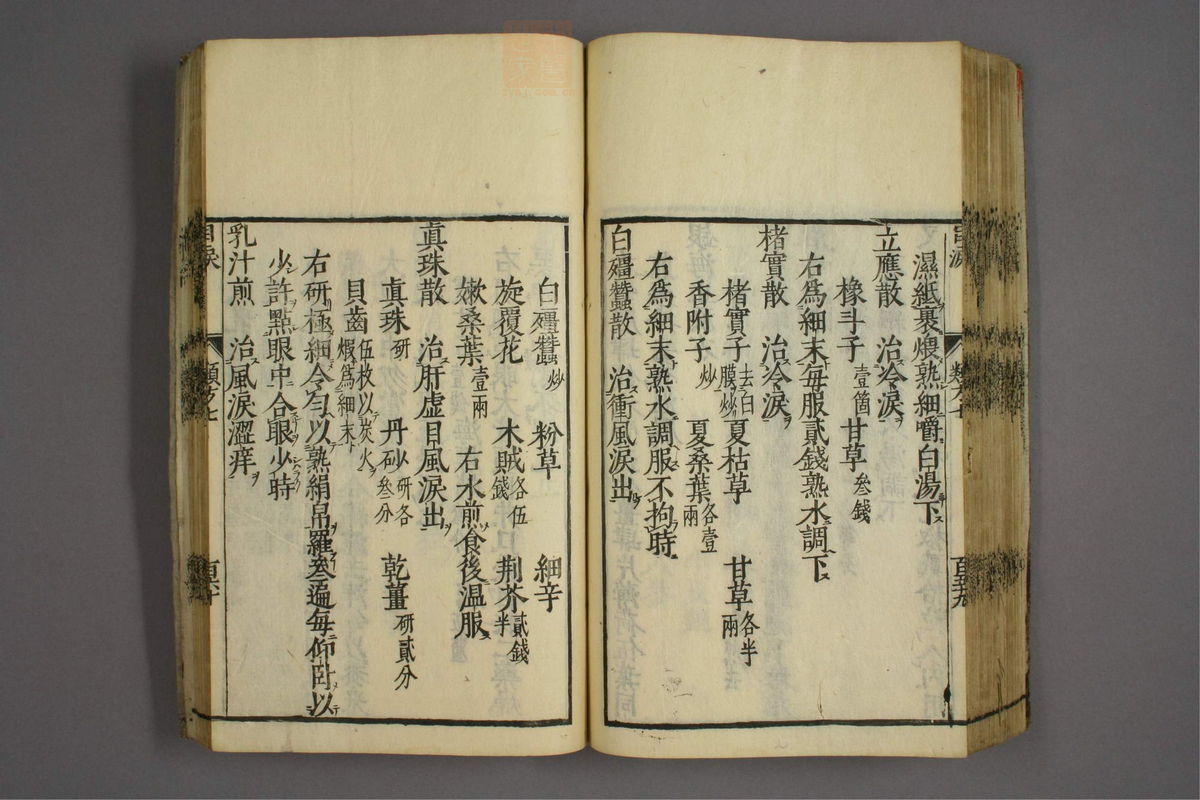 濕紙裹煨熟細嚼白湯下
立應散　治冷淚
橡斗子壹箇　甘草叁錢
右爲細末每服貳錢熟水調下
楮實散　治冷淚
楮實子去白膜炒　夏枯草　甘草各半兩
香附子炒　夏桑葉各壹兩
右爲細末熟水調服不拘時
白殭蠶散　治衝風淚出
白殭蠶炒　粉草　細辛
旋覆花　木賊各伍錢　荆芥貳錢半
嫩桑葉壹兩　右水煎食後温服
真珠散　治肝虚目風淚出
真珠研　丹砂研各叁分　乾薑研貳分
貝齒伍枚以炭火煅爲細末
右研極細令勻以熟絹帛羅叁遍每仰卧以
少許點眼中合眼少時
乳汁煎　治風淚澀痒
目淚　類之七